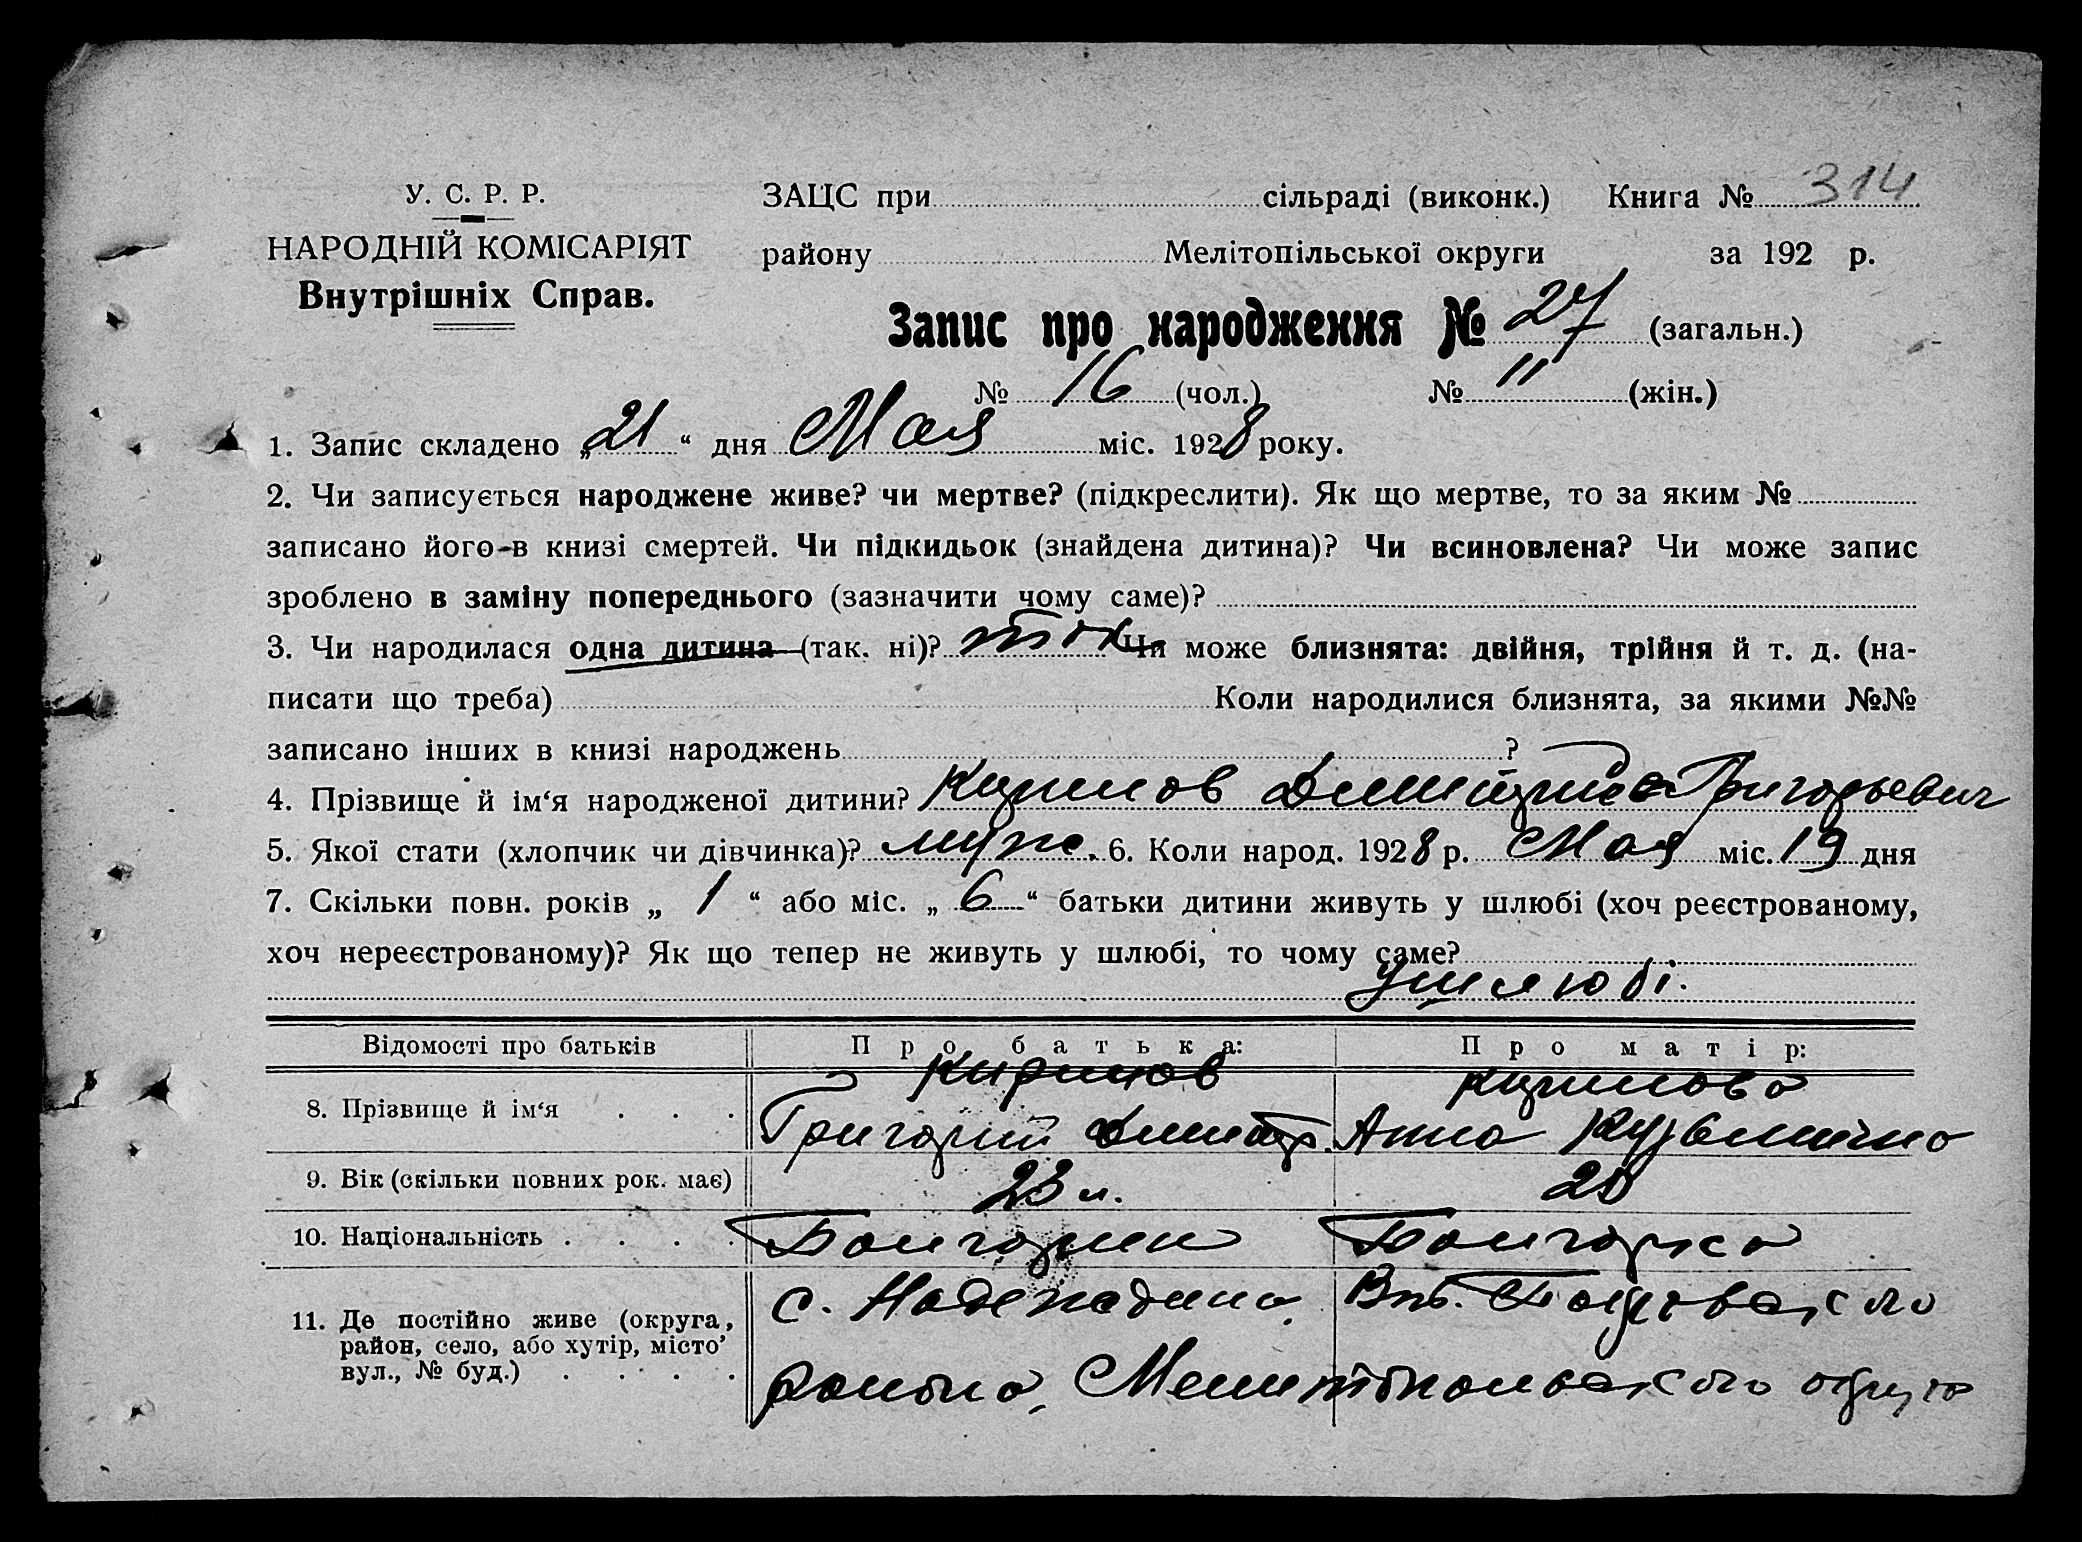 У. С. Р. Р.
НАРОДНІЙ КОМІСАРІЯТ
Внутрішніх Справ.
ЗАЦС при сільраді (виконк.) Книга № 314
району Мелітопільської округи за 192 р.
Запис про народження № 27 (загальн.)
№ 16 (чол.) № 11 (жін.)
1. Запис складено „21“ дня Мая міс. 1928 року.
2. Чи записується народжене живе? чи мертве? (підкреслити). Як що мертве, то за яким №
записано його в книзі смертей. Чи підкидьок (знайдена дитина)? Чи всиновлена? Чи може запис
зроблено в заміну попереднього (зазначити чому саме)?
3. Чи народилася одна дитина (так. ні)? так Чи може близнята: двійня, трійня й т. д. (на-
писати що треба) Коли народилися близнята, за якими №№
записано інших в книзі народжень ?
4. Прізвище й ім‘я народженої дитини? Киримов Димитрий Григорьевич
5. Якої стати (хлопчик чи дівчинка)? муж. 6. Коли народ. 1928 р. Мая міс. 19 дня
7. Скільки повн. років „ 1 “ або міс. „ 6 “ батьки дитини живуть у шлюбі (хоч реєстрованому,
хоч нереєстрованому)? Як що тепер не живуть у шлюбі, то чому саме?
у шлюбі.
Відомості про батьків Про батька: Про матір:
8. Прізвище й ім‘я . . . Киримов Киримова
Григорий Димитр. Анна
9. Вік (скільки повних рок. має) 23 л. 20
10. Національність . . . . Болгарин Болгарка
11. Де постійно живе (округа,
район, село, або хутір, місто’
вул., № буд.) . . . .
с. Надеждино
района, Мелитопольского округа